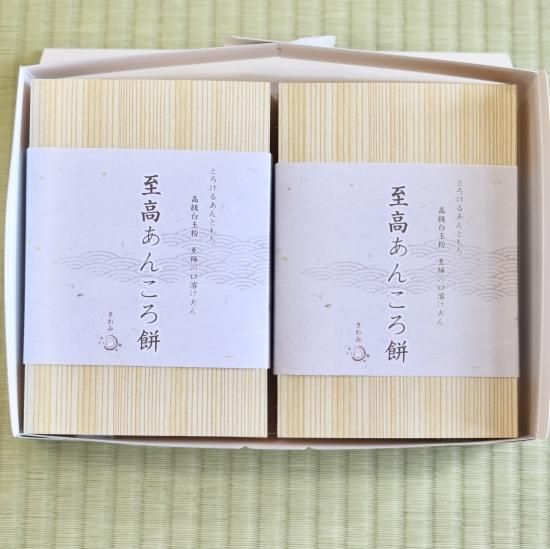 とろけるあんともち
高級白玉粉 至極の口溶けあん
至高あんころ餅
きわみ
とろけるあんともち
高級白玉粉 至極の口溶けあん
至高あんころ餅
きわみ